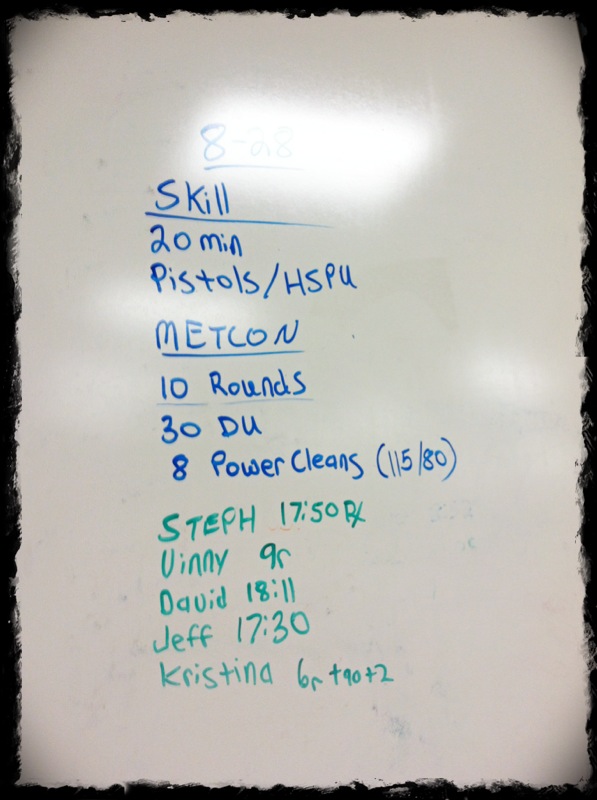 8-28
Skill
20 min
Pistols/HSPU
METCON
10 Rounds
30 DU
8 Power Cleans (115/80)
STEPH 17:50 Rx
Vinny 9r
David 18:11
Jeff 17:30
Kristina 6r +90+2